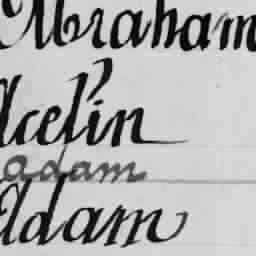 Abraham
Acelin
adam
Adam